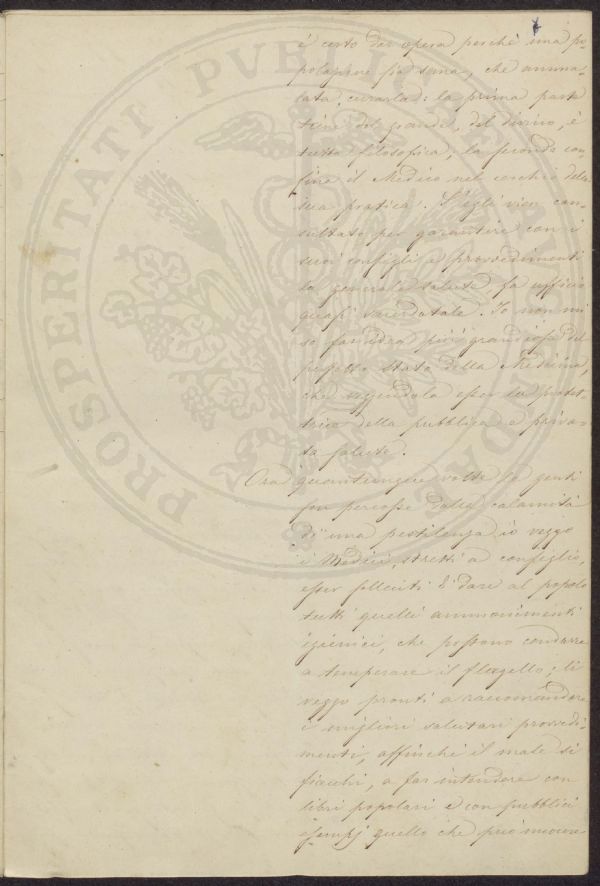 è certo dar opera perchè una po-
polazione sia sana, che amma-
lata curarla: la prima parte
tiene del grande, del divino, è
tutta filosofica; la seconda con-
fina il Medico nel cerchio della
sua pratica. S'egli vien con-
sultato per garantire con i
suoi consigli e provvedimenti
la generale salute, fa ufficio
quasi sacerdotale. Io non mi
so far idea più grandiosa del
perfetto stato della Medicina,
che veggendola esser la protet-
trice della pubblica e priva-
ta salute.
Ora quantunque volte le genti
fur percosse dalla calamità
di una pestilenza io veggo
i Medici, stretti a consiglio,
esser solleciti di dare al popolo
tutti quelli ammonimenti
igienici, che possono condurre
a temperare il flagello; li
veggo pronti a raccomandare
i migliori salutari provvedi-
menti, affinchè il male si
fiacchi, a far intendere con
libri popolari e con pubblici
esempj quello che può nuocere
PROSPERITATI PVBLICAE